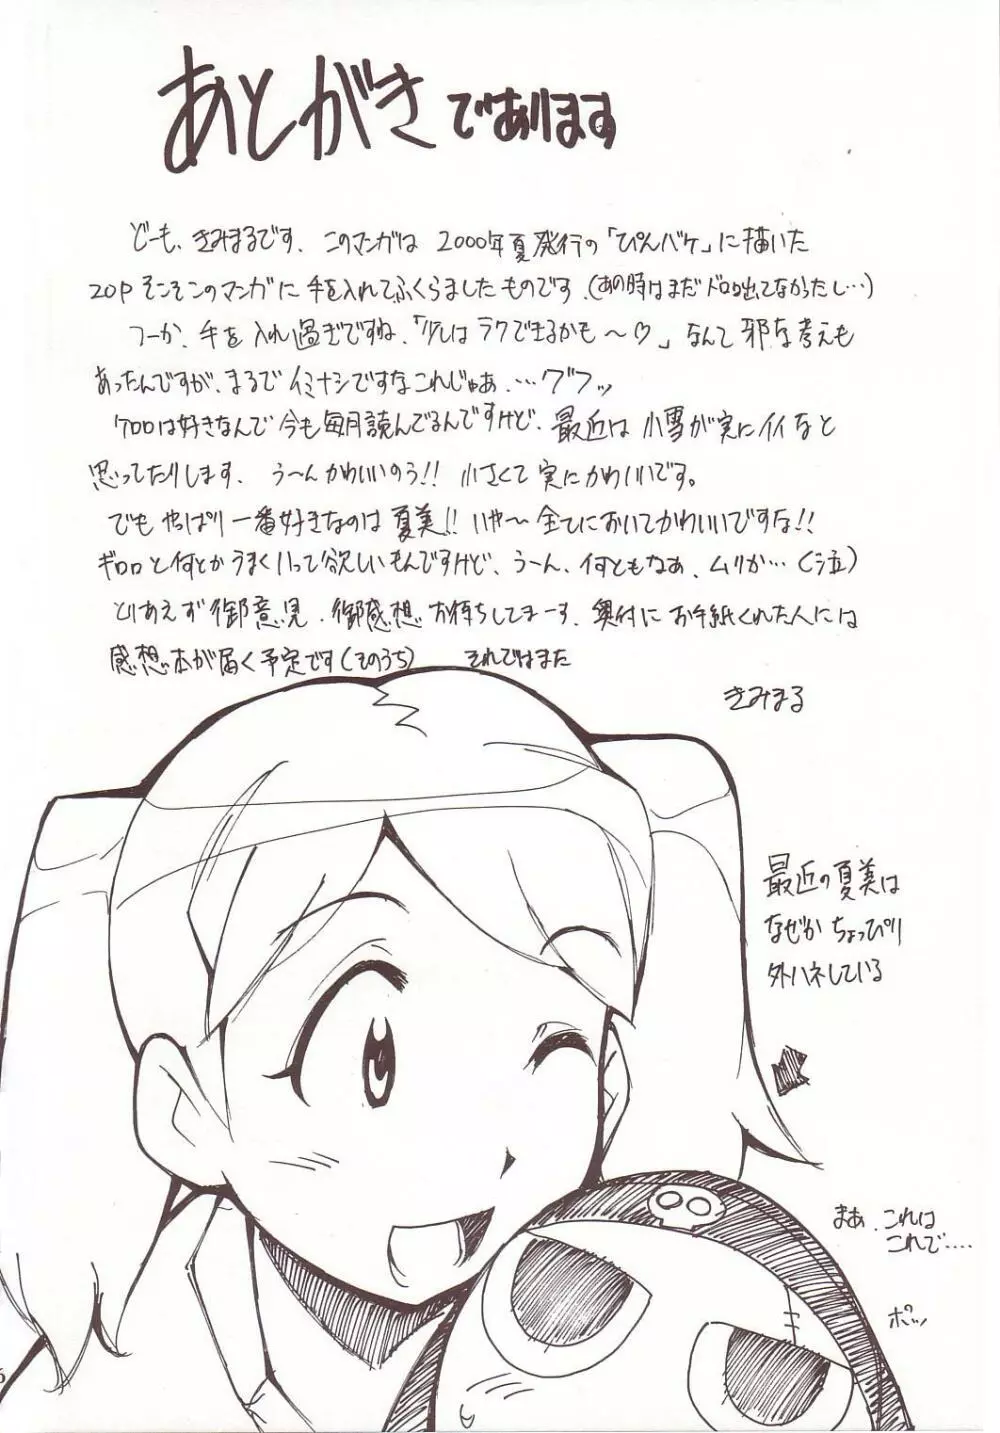 あとがきであります
どーも、きみまるです、このマンガは 2000年夏発行の「ぴんバケ」に描いた
20Pそこそこのマンガに手を入れてふくらましたものです、(あの時はまだドロロ出てなかったし…)
つーか、手を入れ過ぎですね、「少しはラクできるかも～♡」なんて邪な考えも
あったんですが、まるでイミナシですなこれじゃあ、…グフッ
ケロロは好きなんで今も毎月読んでるんですけど、最近は小雪が実にイイなと
思ってたりします、う～んかわいいのう!! 小さくて実にかわいいです。
でもやっぱり一番好きなのは夏美!! いや～全てにおいてかわいいですな!!
ギロロと何とかうまくいって欲しいもんですけど、う～ん、何ともなぁ、ムリか…(泣)
とりあえず御意見、御感想お待ちしてまーす、奥付にお手紙くれた人には
感想本が届く予定です(そのうち) それではまた
きみまる
最近の夏美は
なぜかちょっぴり
外ハネしている
まあ、これは
これで‥‥
ポッ